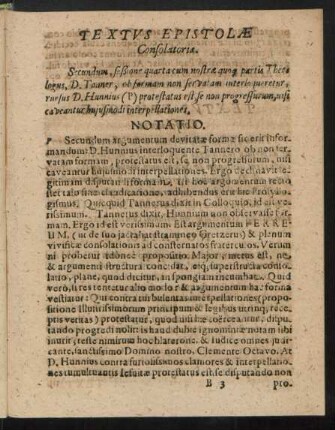 TEXTVS EPISTOLÆ
Consolatoriæ.
Secundum, sessione quarta cum nostræ quoq; partis Theo
logus, D. Tanner, ob formam non servatam interim
rursus D. Hunnius (P) protestatus est, se non progressurum, nisi
caveantur hujusmodi interpellationes.
NOTATIO.
P Secundum argumentum de vitatæ formæ sic erit
mandum: D. Hunnius interloquente Tannero ob non ser-
vatam formam, protestatus est, se non progressurum, nisi
caveantur hujusmodi interpellationes. Ergo
gitimam disputat
set
Quicquid Tannerus dixit in Colloquio, id est ve-
rissimum. Tannerus dixit, Hunnium non observasse for-
mam. Ergo id est verissimum. Est argumentum FERRE-
UM, ( ut de suo jactabat stramineo Gretzerus) & plenum
vivificæ consolationis ad consternatos fratercutos. Verum
ni probetur idonee propositio Major
& argumenti structura concidet, eiq; superstructa conso-
latio, plane, quod dicitur, in spongiam incumbat. Quid
vero, si res tentetur alio modo? & argumentum hac forma
vestiatur: Qui contra turbulentas interpellationes (propo-
sitione Illustrissimorum principum & legibus utrinq; rece-
ptis vetitas) protestatur, quod usitatæ coerceantur, dispu-
tando progredi nolit: is haud dubie ignominiæ notam sibi
inurit, (teste nimirum hoc
caute, sanctissimo Domino nostro, Clemente Octavo. At
D. Hunnius contra furiosissimos clamores & interpellatio-
nes tumultuantis Jesuitæ protestatus est, se disputando non
B 3 pro.